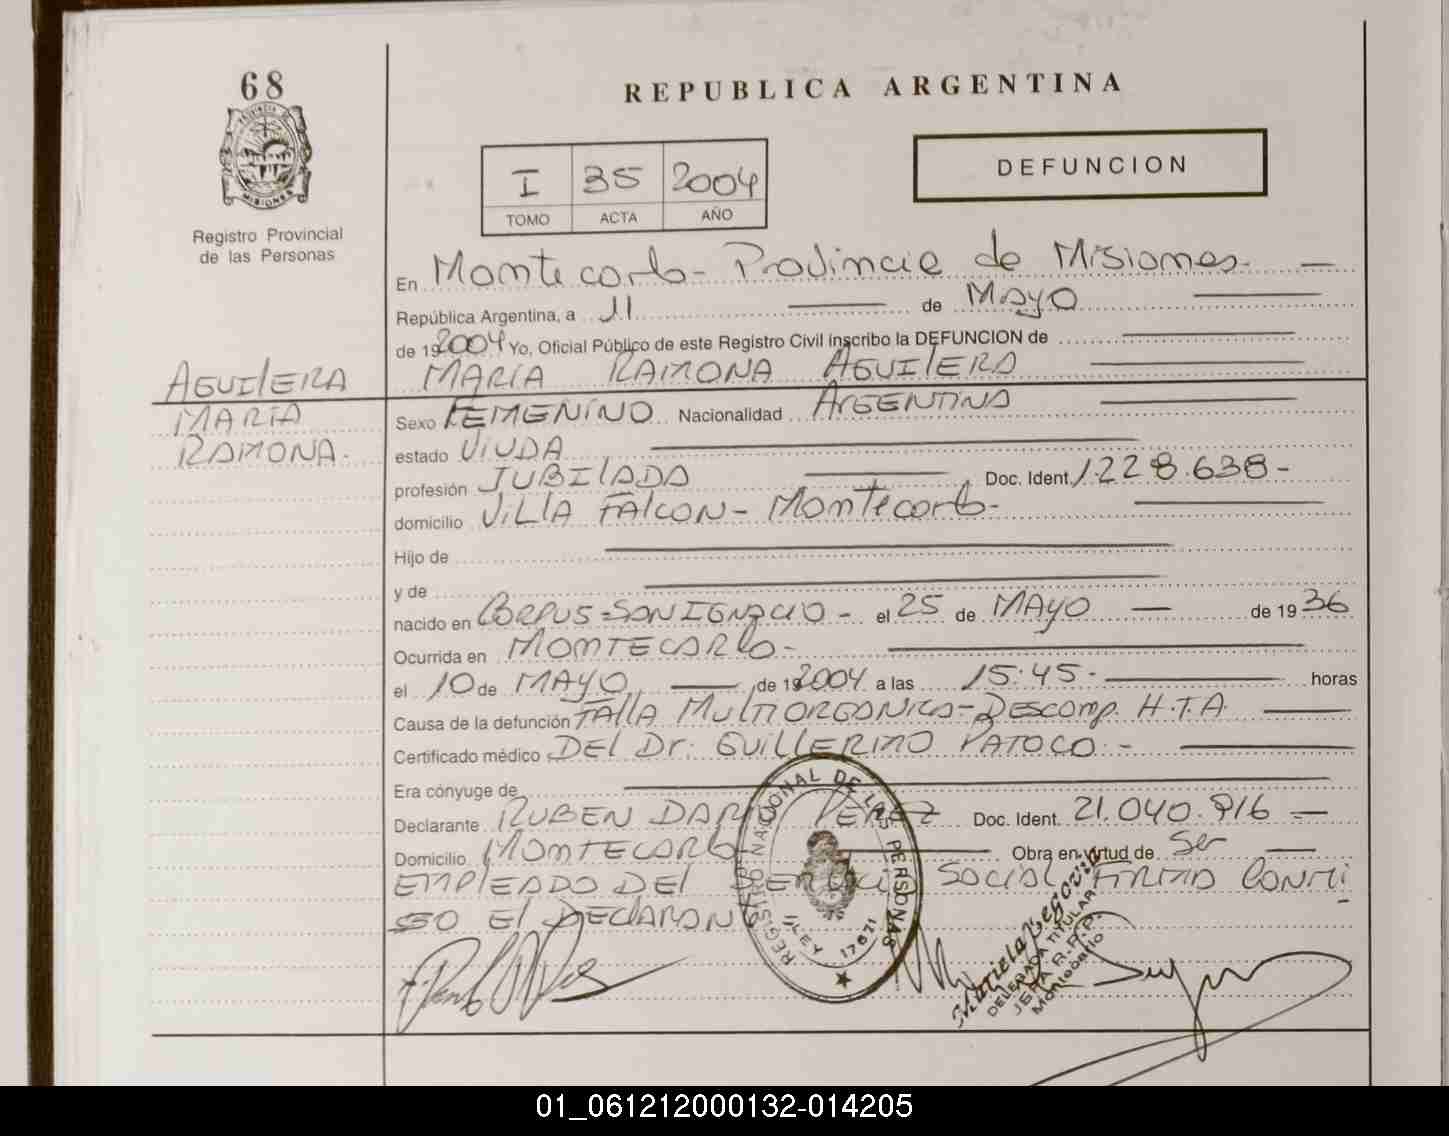 68
PROVINCIA DE
MISIONES
Registro Provincial
de las Personas
REPUBLICA ARGENTINA
I 35 2004
TOMO ACTA AÑO
DEFUNCION
En Montecarlo - Provincia de Misiones
República Argentina, a 11 de Mayo
de 19 2004 Yo, Oficial Público de este Registro Civil inscribo la DEFUNCION de
MARIA RAMONA AGUILERA
AGUILERA
MARIA
RAMONA.
Sexo FEMENINO Nacionalidad ARGENTINA
estado VIUDA
profesión JUBILADA Doc. Ident. 1.228.638-
domicilio VILLA FALCON - Montecarlo-
Hijo de
y de
nacido en CORPUS-SAN IGNACIO - el 25 de MAYO de 19 36
Ocurrida en MONTECARLO-
el 10 de MAYO de 19 2004 a las 15:45- horas
Causa de la defunción FALLA MULTIORGANICA - Descomp. H.T.A.
Certificado médico DEL Dr. GUILLERMO PATOCO -
Era cónyuge de
Declarante RUBEN DARIO PEREZ Doc. Ident. 21.040.916
Domicilio MONTECARLO Obra en virtud de Ser
EMPLEADO DEL SOCIAL FIRMA CONMI
GO EL DECLARANTE
REGISTRO NACIONAL DE LAS PERSONAS
LEY 17671
Mariela Segovia
DELEGADA TITULAR
R.P.P.
Montecarlo
01_061212000132-014205